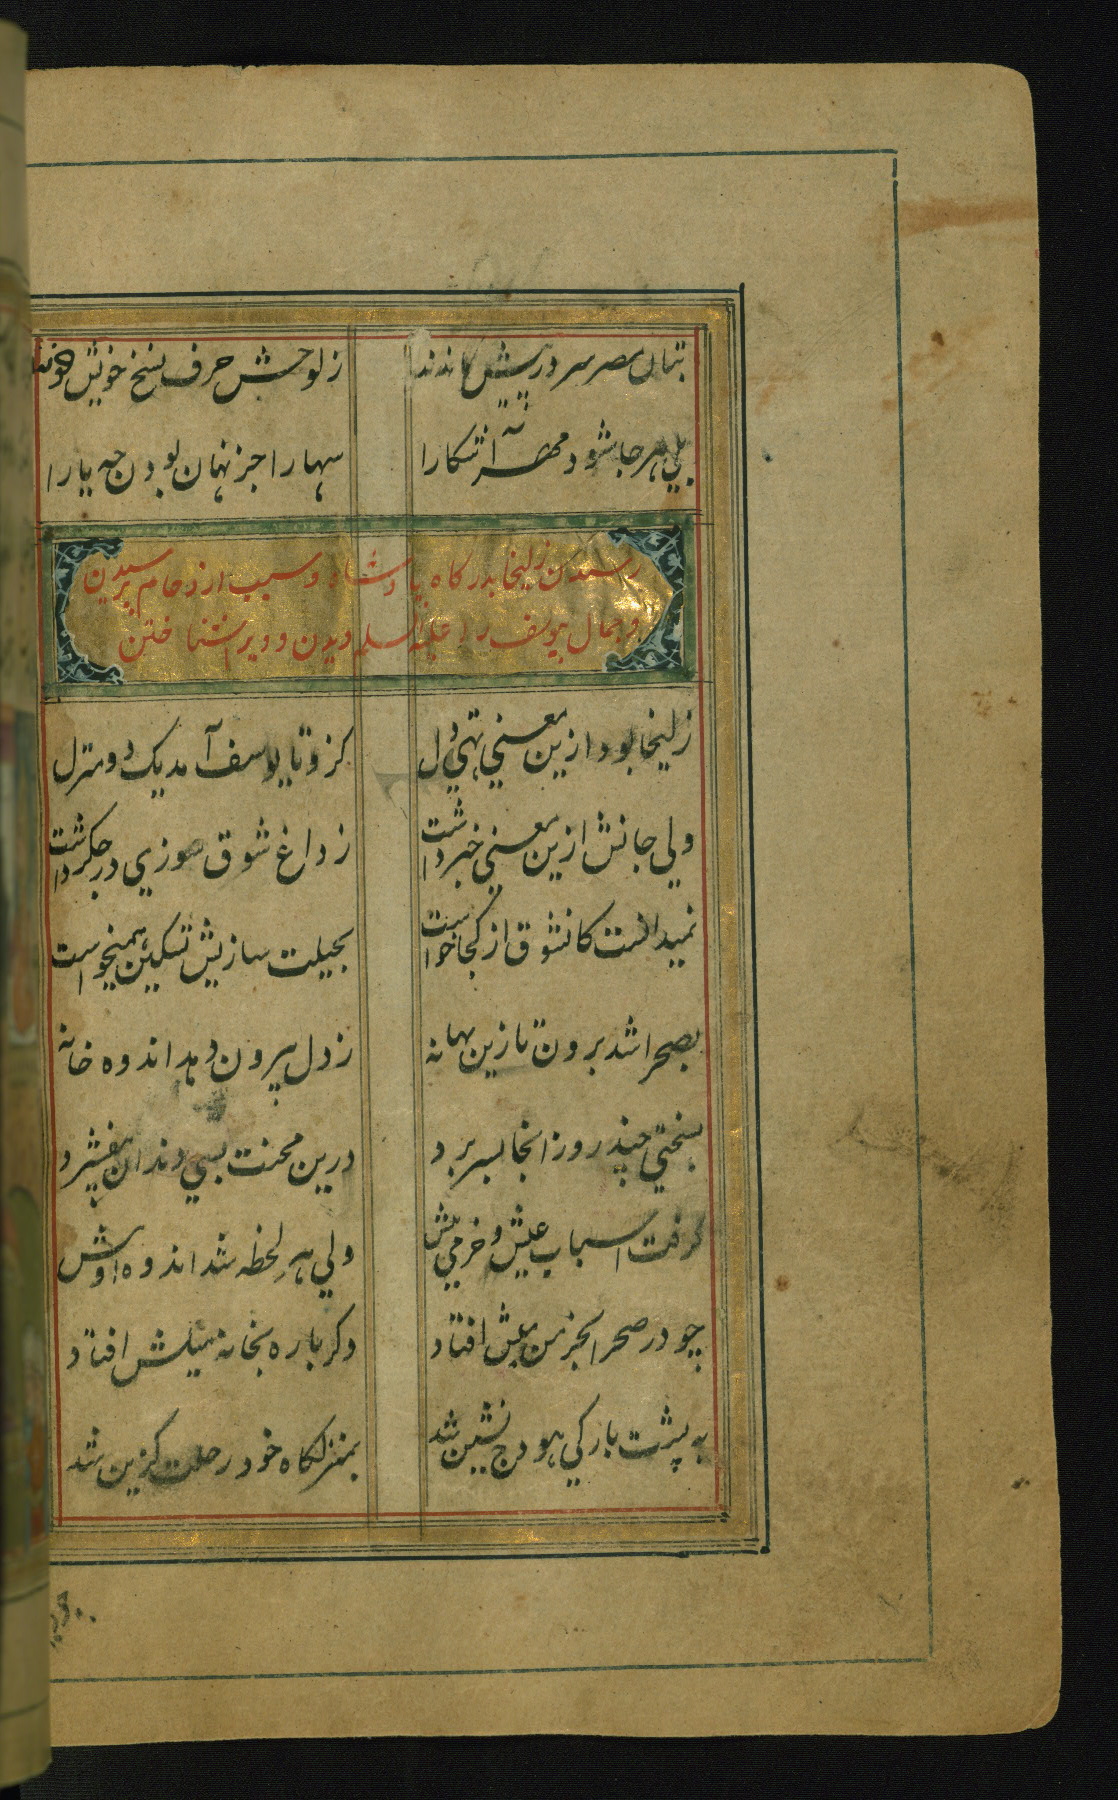 بتان مصر سر در پیش ماندند
ز لوحش حرف نسخ خویش خواندند
بلی هر جا شود مهر آشکارا
سها را جز نهان بودن چه یارا
رسیدن زلیخا بدرکاه پادشاه و سبب ازدحام پرسیدن
و جمال یوسف را علیه السلم دیدن و ویرا شناختن
زلیخا بود ازین معنی تهی دل
کزو تا یوسف آمد یک دو منزل
ولی جانش ازین معنی خبر داشت
ز داغ شوق سوزی در جکر داشت
نمیدانست کانشوق از کجا خواست
بحیلت سازیش تسکین همیخواست
بصحرا شد برون تا زین بهانه
ز دل بیرون دهد اندوه خانه
بسختی چند روز آنجا بسر برد
درین محنت بسی دندان بیفشرد
کرفت اسباب عیش و خرمی پیش
ولی هر لحظه شد اندوه او بیش
چو در صحرا بجز من میلش افتاد
دکر باره بخانه میلش افتاد
به پشت بارکی هودج نشین شد
بمنزلکاه خود رحلت کزین شد